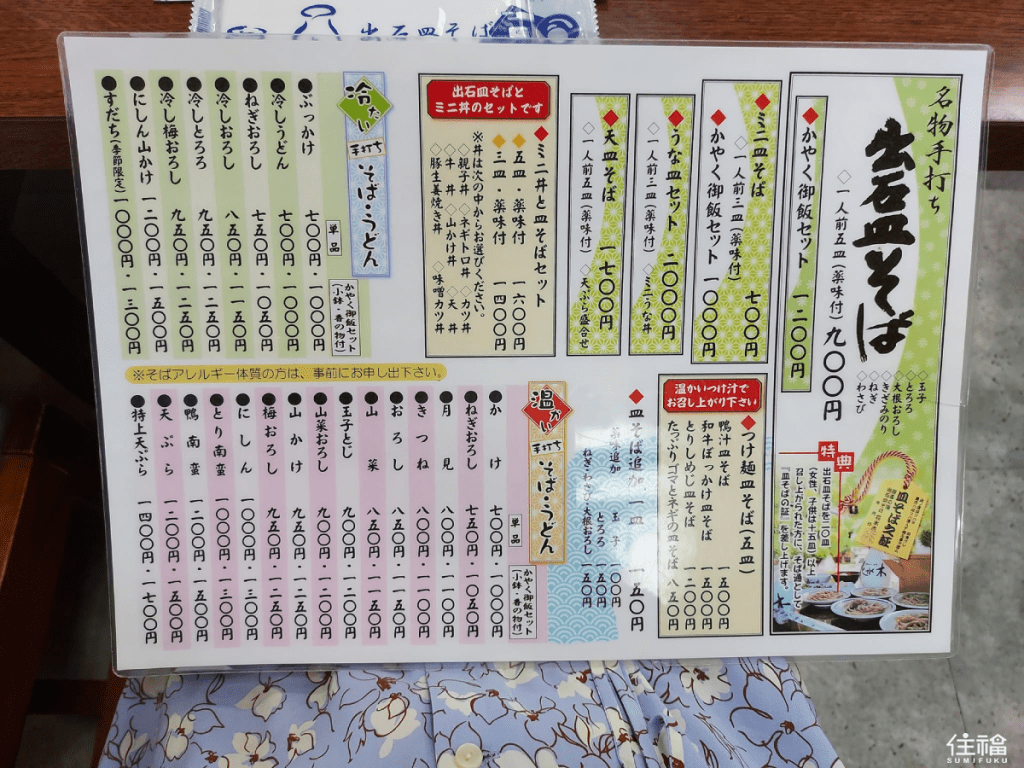 出石皿そば
名物手打ち
出石皿そば
◇一人前五皿(薬味付) 九〇〇円
◆かやく御飯セット 一二〇〇円
◇玉子
◇とろろ
◇大根おろし
◇きざみのり
◇ねぎ
◇わさび
特典
出石皿そばを二〇皿
(女性、子供は十五皿)以上
召し上がられた方に、そば通とし
「皿そばの証」を差し上げます。
皿そば之証
◆ミニ皿そば 七〇〇円
◇一人前三皿(薬味付)
◆かやく御飯セット 一〇〇〇円
◆うな皿セット 二〇〇〇円
◇一人前三皿(薬味付) ◇ミニうな丼
◆天皿そば 一七〇〇円
◇一人前五皿(薬味付) ◇天ぷら盛合せ
出石皿そばと
ミニ丼のセットです
◆ミニ丼と皿そばセット
◆五皿・薬味付 一六〇〇円
◆三皿・薬味付 一四〇〇円
※丼は次の中からお選びください。
◇親子丼 ◇ネギトロ丼 ◇カツ丼
◇牛丼 ◇山かけ丼 ◇天丼
◇豚生姜焼き丼 ◇味噌カツ丼
温かいつけ汁で
お召し上がり下さい
◆つけ麺皿そば(五皿)
鴨汁皿そば 一五〇〇円
和牛ぼっかけ皿そば 一五〇〇円
とりしめじ皿そば 一二〇〇円
たっぷりゴマとネギの皿そば 八五〇円
◆皿そば追加 一皿 一五〇円
薬味追加 玉子 一〇〇円
とろろ 一五〇円
ねぎ・わさび・大根おろし 一五〇円
冷たい 手打ち そば・うどん
単品
かやく御飯セット
(小鉢・香の物付)
●ぶっかけ 七〇〇円・一〇〇〇円
●冷しうどん 七〇〇円・一〇〇〇円
●ねぎおろし 七五〇円・一〇五〇円
●冷しおろし 八五〇円・一一五〇円
●冷しとろろ 九五〇円・一二五〇円
●冷し梅おろし 九五〇円・一二五〇円
●にしん山かけ 一二〇〇円・一五〇〇円
●すだち(季節限定) 一〇〇〇円・一三〇〇円
※そばアレルギー体質の方は、事前にお申し出下さい。
温かい 手打ち そば・うどん
単品
かやく御飯セット
(小鉢・香の物付)
●かけ 七〇〇円・一〇〇〇円
●ねぎおろし 七五〇円・一〇五〇円
●月見 八〇〇円・一一〇〇円
●きつね 八〇〇円・一一〇〇円
●おろし 八五〇円・一一五〇円
●山菜 八五〇円・一一五〇円
●玉子とじ 九〇〇円・一二〇〇円
●山菜おろし 九五〇円・一二五〇円
●山かけ 九五〇円・一二五〇円
●梅おろし 九五〇円・一二五〇円
●にしん 一〇〇〇円・一三〇〇円
●とり南蛮 一〇〇〇円・一三〇〇円
●鴨南蛮 一二〇〇円・一五〇〇円
●天ぷら 一二〇〇円・一五〇〇円
●特上天ぷら 一四〇〇円・一七〇〇円
住福
SUMIFUKU